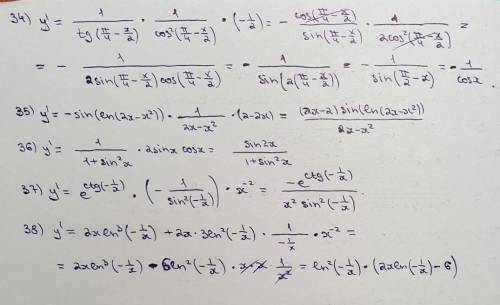 34) y' = 1/tg(π/4 - x/2) · 1/cos²(π/4 - x/2) · (-1/2) = - cos(π/4 - x/2)/sin(π/4 - x/2) · 1/2cos²(π/4 - x/2) =
= - 1/2sin(π/4 - x/2)cos(π/4 - x/2) = - 1/sin(2(π/4 - x/2)) = - 1/sin(π/2 - x) = - 1/cosx.
35) y' = -sin(ln(2x-x²)) · 1/2x-x² · (2-2x) = (2x-2)sin(ln(2x-x²))/2x-x²
36) y' = 1/1+sin²x · 2sinx cosx = sin2x/1+sin²x
37) y' = e^ctg(-1/x) · (- 1/sin²(-1/x)) · x⁻² = -e^ctg(-1/x)/x² sin²(-1/x)
38) y' = 2xln³(-1/x) + 2x · 3ln²(-1/x) · 1/-1/x · x⁻² =
= 2xln³(-1/x) - 6ln²(-1/x) · x · x · 1/x² = ln²(-1/x) · (2xln(-1/x) - 6)